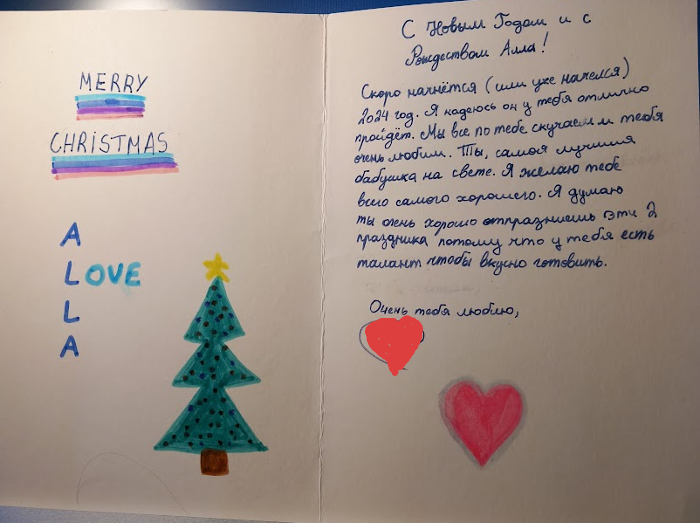 MERRY
CHRISTMAS
A
LOVE
L
A
С Новым Годом и с
Рождеством Алла!
Скоро начнётся (или уже начелся)
2024 год. Я надеюсь он у тебя отлично
пройдёт. Мы все по тебе скучаем и тебя
очень любим. Ты, самая лучшия
бабушка на свете. Я желаю тебе
всего самого хорошего. Я думаю
ты очень хорошо отпразниешь эти 2
праздника потому что у тебя есть
талант чтобы вкусно готовить.
Очень тебя люблю,